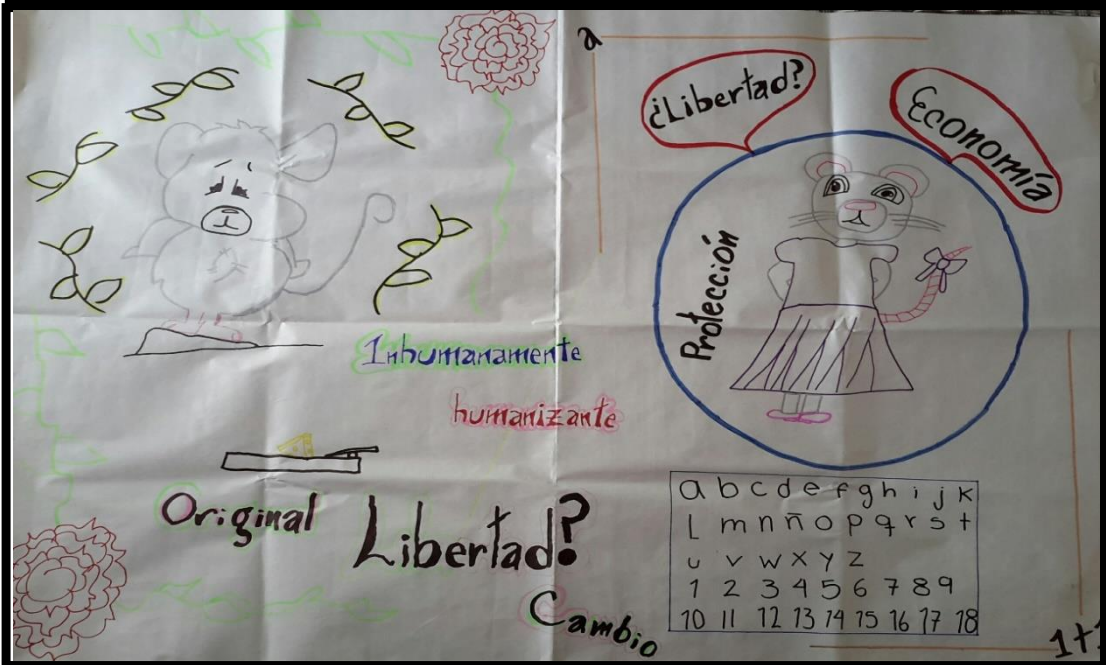 a
¿Libertad?
Economía
Protección
Inhumanamente
humanizante
Original
Libertad?
Cambio
a b c d e f g h i j k
l m n ñ o p q r s t
u v w x y z
1 2 3 4 5 6 7 8 9
10 11 12 13 14 15 16 17 18
1+1